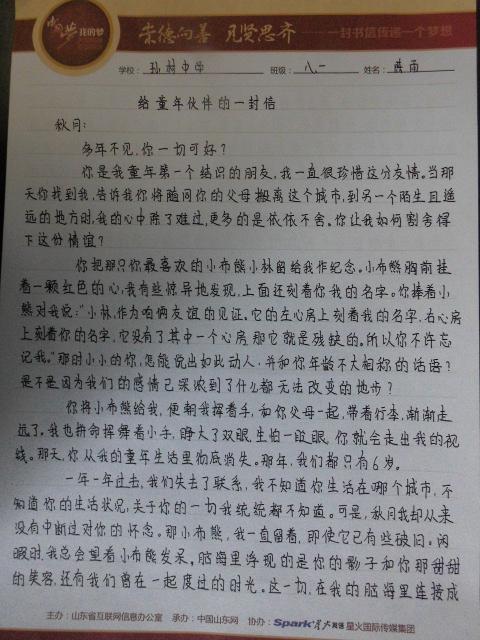 中国梦 我的梦 崇德向善 见贤思齐 ——一封书信传递一个梦想
学校: 孙村中学 班级: 八.一 姓名:
给童年伙伴的一封信
秋月:
多年不见,你一切可好?
你是我童年第一个结识的朋友,我一直很珍惜这分友情。当那
天你找到我,告诉我你将随同你的父母搬离这个城市,到另一个陌生且遥
远的地方时,我的心中除了难过,更多的是依依不舍。你让我如何割舍得
下这份情谊?
你把那只你最喜欢的小布熊小林留给我作纪念。小布熊胸前挂
着一颗红色的心,我有些惊异地发现,上面还刻着你我的名字。你捧着小
熊对我说:“小林,作为咱俩友谊的见证。它的左心房上刻着我的名字,右心房
上刻着你的名字,它没有了其中一个心房,那它就是残缺的。所以你不许忘
记我。”那时小小的你,怎能说出如此动人,并和你年龄不大相称的话语?
是不是因为我们的感情已深浓到了什么都无法改变的地步?
你将小布熊给我,便朝我挥着手,和你父母一起,带着行李,渐渐走
远了。我也拼命挥舞着小手,睁大了双眼,生怕一眨眼,你就会走出我的视
线。那天,你从我的童年生活里彻底消失。那年,我们都只有6岁。
一年一年过去,我们失去了联系,我不知道你生活在哪个城市,不
知道你的生活状况,关于你的一切我统统都不知道。可是,秋月我却从来
没有中断过对你的怀念。那小布熊,我一直留着,即使它已有些破旧。闲
暇时我总会望着小布熊发呆,脑海里浮现的是你的影子和你那甜甜
的笑容,还有我们曾在一起度过的时光。这一切,在我的脑海里连接成
主办:山东省互联网信息办公室 承办:中国山东网 协办:Spark星火英语 星火国际传媒集团